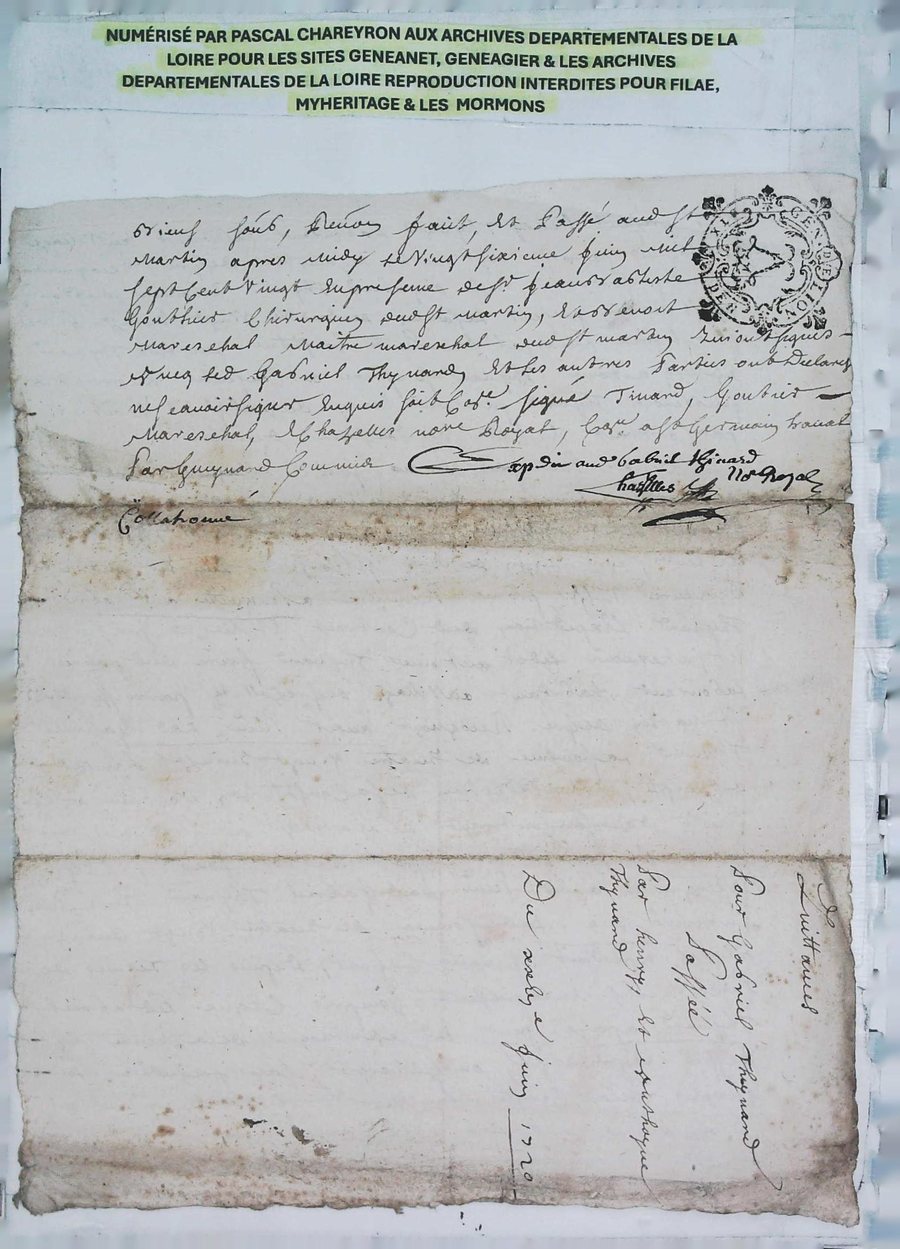 NUMÉRISÉ PAR PASCAL CHAREYRON AUX ARCHIVES DEPARTEMENTALES DE LA
LOIRE POUR LES SITES GENEANET, GENEAGIER & LES ARCHIVES
DEPARTEMENTALES DE LA LOIRE REPRODUCTION INTERDITES POUR FILAE,
MYHERITAGE & LES MORMONS
GEN. DE LION
fait, et Passé aud st
Martin apres midy le Vingt sixieme Juin mil
sept Cent Vingt En presence de sr Jean Baptiste
Gouthier Chirurgien dud st martin, et Benoit
Mareschal Maître mareschal dud st martin qui ont signés
avec led Gabriel Thynard, et les autres Parties ont declaré
ne scavoir signer Enquis signé Tinard, Goutier
Mareschal, Chazelles nore Royal, a st Germain Laval
Par Guynard Commis
Expdié aud Gabriel Thinard
Chazelles
No Royal
Collationné
Quittance
Pour Gabriel Thynard
Passée
Par henry, et
Thynard
Du Juin 1720